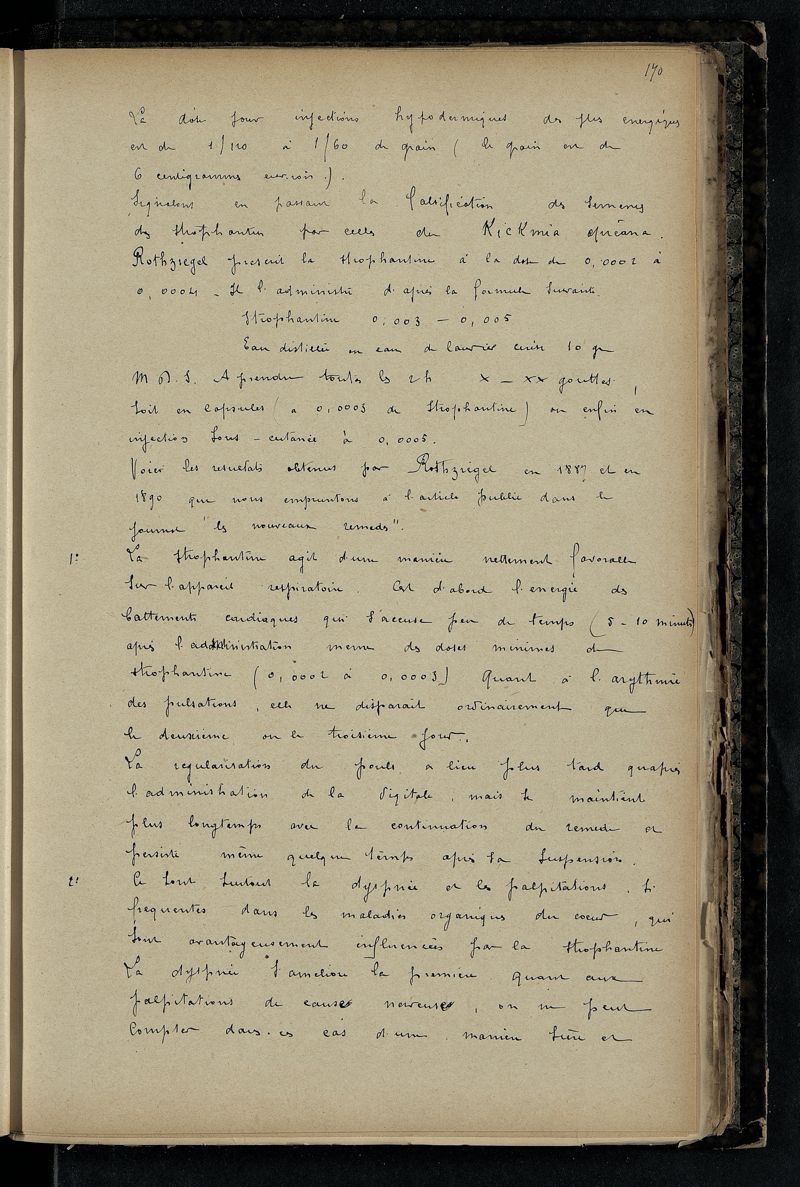 170
La dose pour injections hypodermiques des plus energiques
est de 1/120 à 1/60 de grain ( le grain est de
6 centigrammes environ ).
Signalons en passant la falsification des semences
des strophantus par celles du Kickmia africana.
Rothziegel prescrit la strophantine à la dose de 0,0002 à
0,0004 - Il l'administre d'après la formule suivante
Strophantine 0,003 - 0,005
Eau distillée ou eau de laurier cerise 10 gr
M D. S. A prendre toutes les 2 h x - xx gouttes,
soit en capsules ( à 0,0003 de strophantine ) ou enfin en
injection sous-cutanée à 0,0005.
Voici les resultats obtenus par Rothziegel en 1887 et en
1890 que nous empruntons à l'article publié dans le
journal "les nouveaux remedes".
1° La strophantine agit d'une manière nettement favorable
sur l'appareil respiratoire. C'est d'abord l'energie des
battements cardiaques qui s'accuse peu de temps ( 5 - 10 minutes)
après l'administration meme des doses minimes de
strophantine ( 0,0002 à 0,0003 ) Quant à l'arythmie
des pulsations, elle ne disparait ordinairement que
le deuxième ou le troisième jour.
La regularisation du pouls a lieu plus tard qu'après
l'administration de la digitale, mais se maintient
plus longtemps avec la continuation du remede et
persiste même quelque temps après sa suspension.
2° Ce sont surtout la dyspnée et les palpitations, si
frequentes dans les maladies organiques du coeur, qui
sont avantageusement influencées par la strophantine
La dyspnée s'améliore la première. Quant aux
palpitations de causes nerveuses, on ne peut
compter dans ces cas d'une manière sûre et